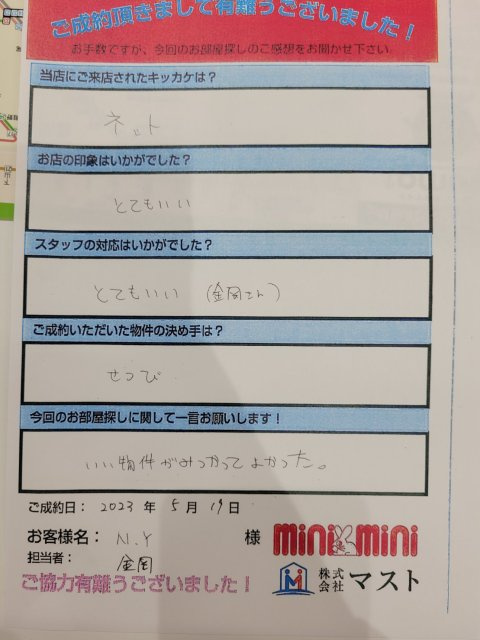 ご成約頂きまして有難うございました！
お手数ですが、今回のお部屋探しのご感想をお聞かせ下さい
当店にご来店されたキッカケは？
ネット
お店の印象はいかがでした？
とてもいい
スタッフの対応はいかがでした？
とてもいい （金岡さん）
ご成約いただいた物件の決め手は？
せつび
今回のお部屋探しに関して一言お願いします！
いい物件がみつかってよかった。
ご成約日： 2023 年 5 月 19 日
お客様名： N.Y 様 mini mini
担当者： 金岡
ご協力有難うございました！ 株式会社 マスト